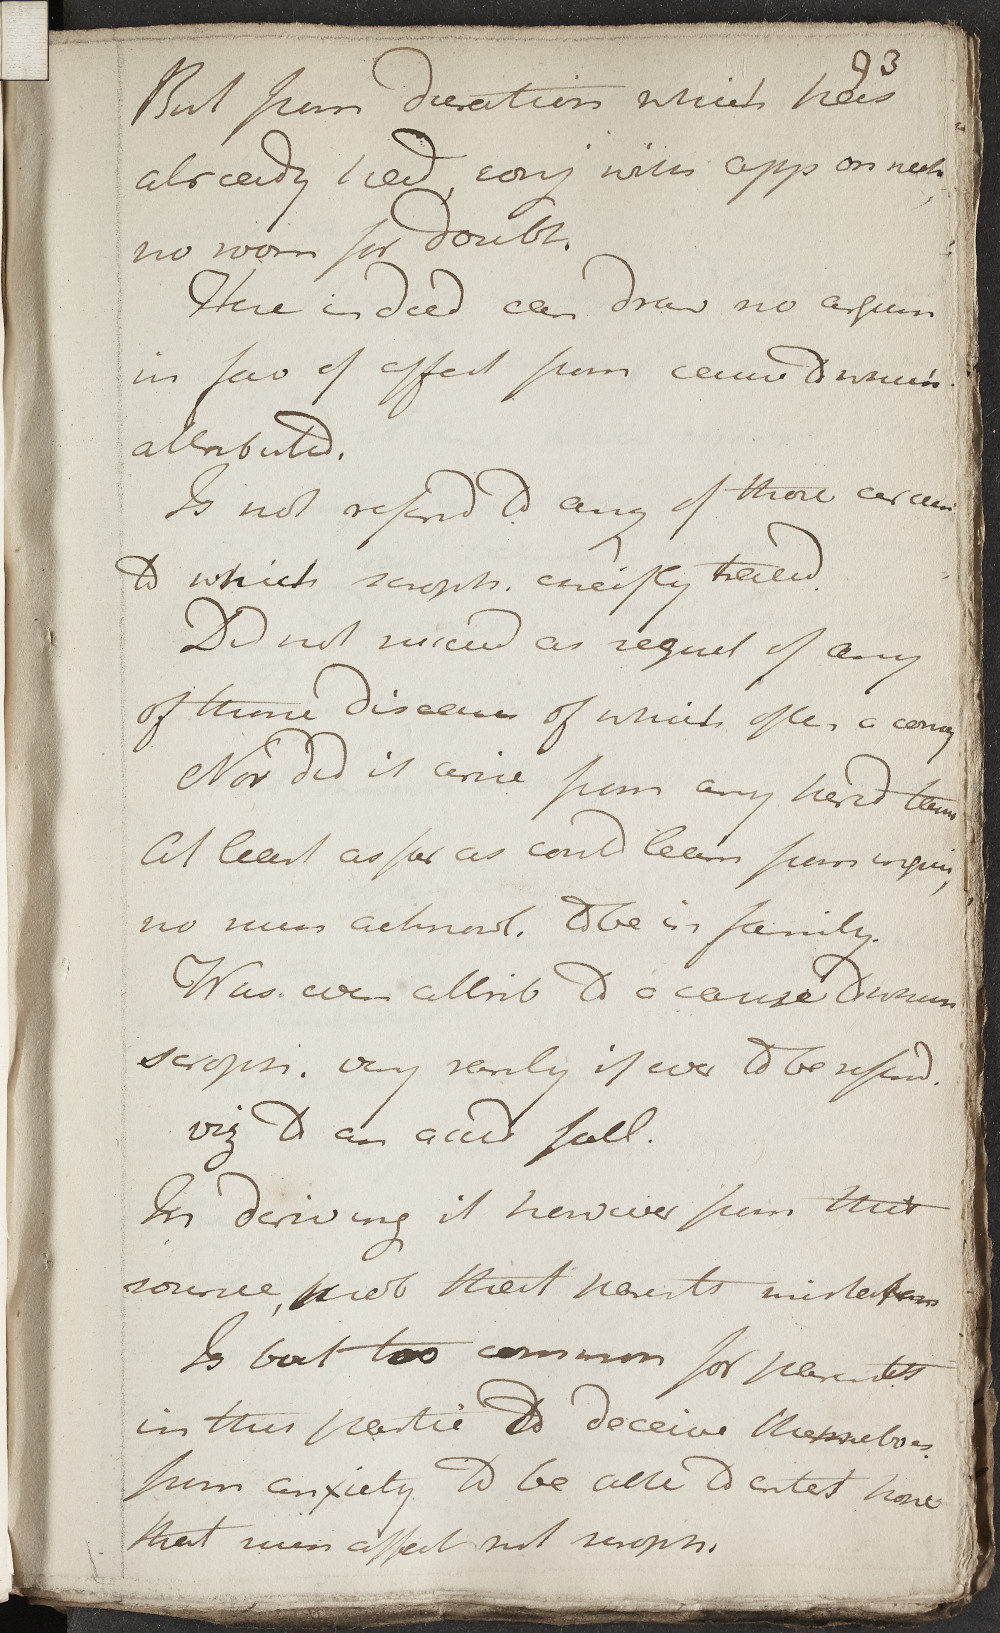 93
But from duration which has
already had, conj with app on neck,
no room for doubt.
Here indeed can draw no argum
in fav of affect from cause to which
attributed.
Is not referd to any of those circum
to which scroph. chiefly traced.
Did not succeed as sequel of any
of those diseases of which often a conseq
Nor did it arise from any hered taint
At least as far as could learn from inquiry,
no such acknowl. to be in family.
Was even attrib to a cause to which
scroph. very rarely if ever to be referd.
viz to an accid fall.
In deriving it however from that
source, prob that parents mistaken
Is but too common for parents
in this partic to deceive themselves.
from anxiety to be able to entert hope
that such affect not scroph.